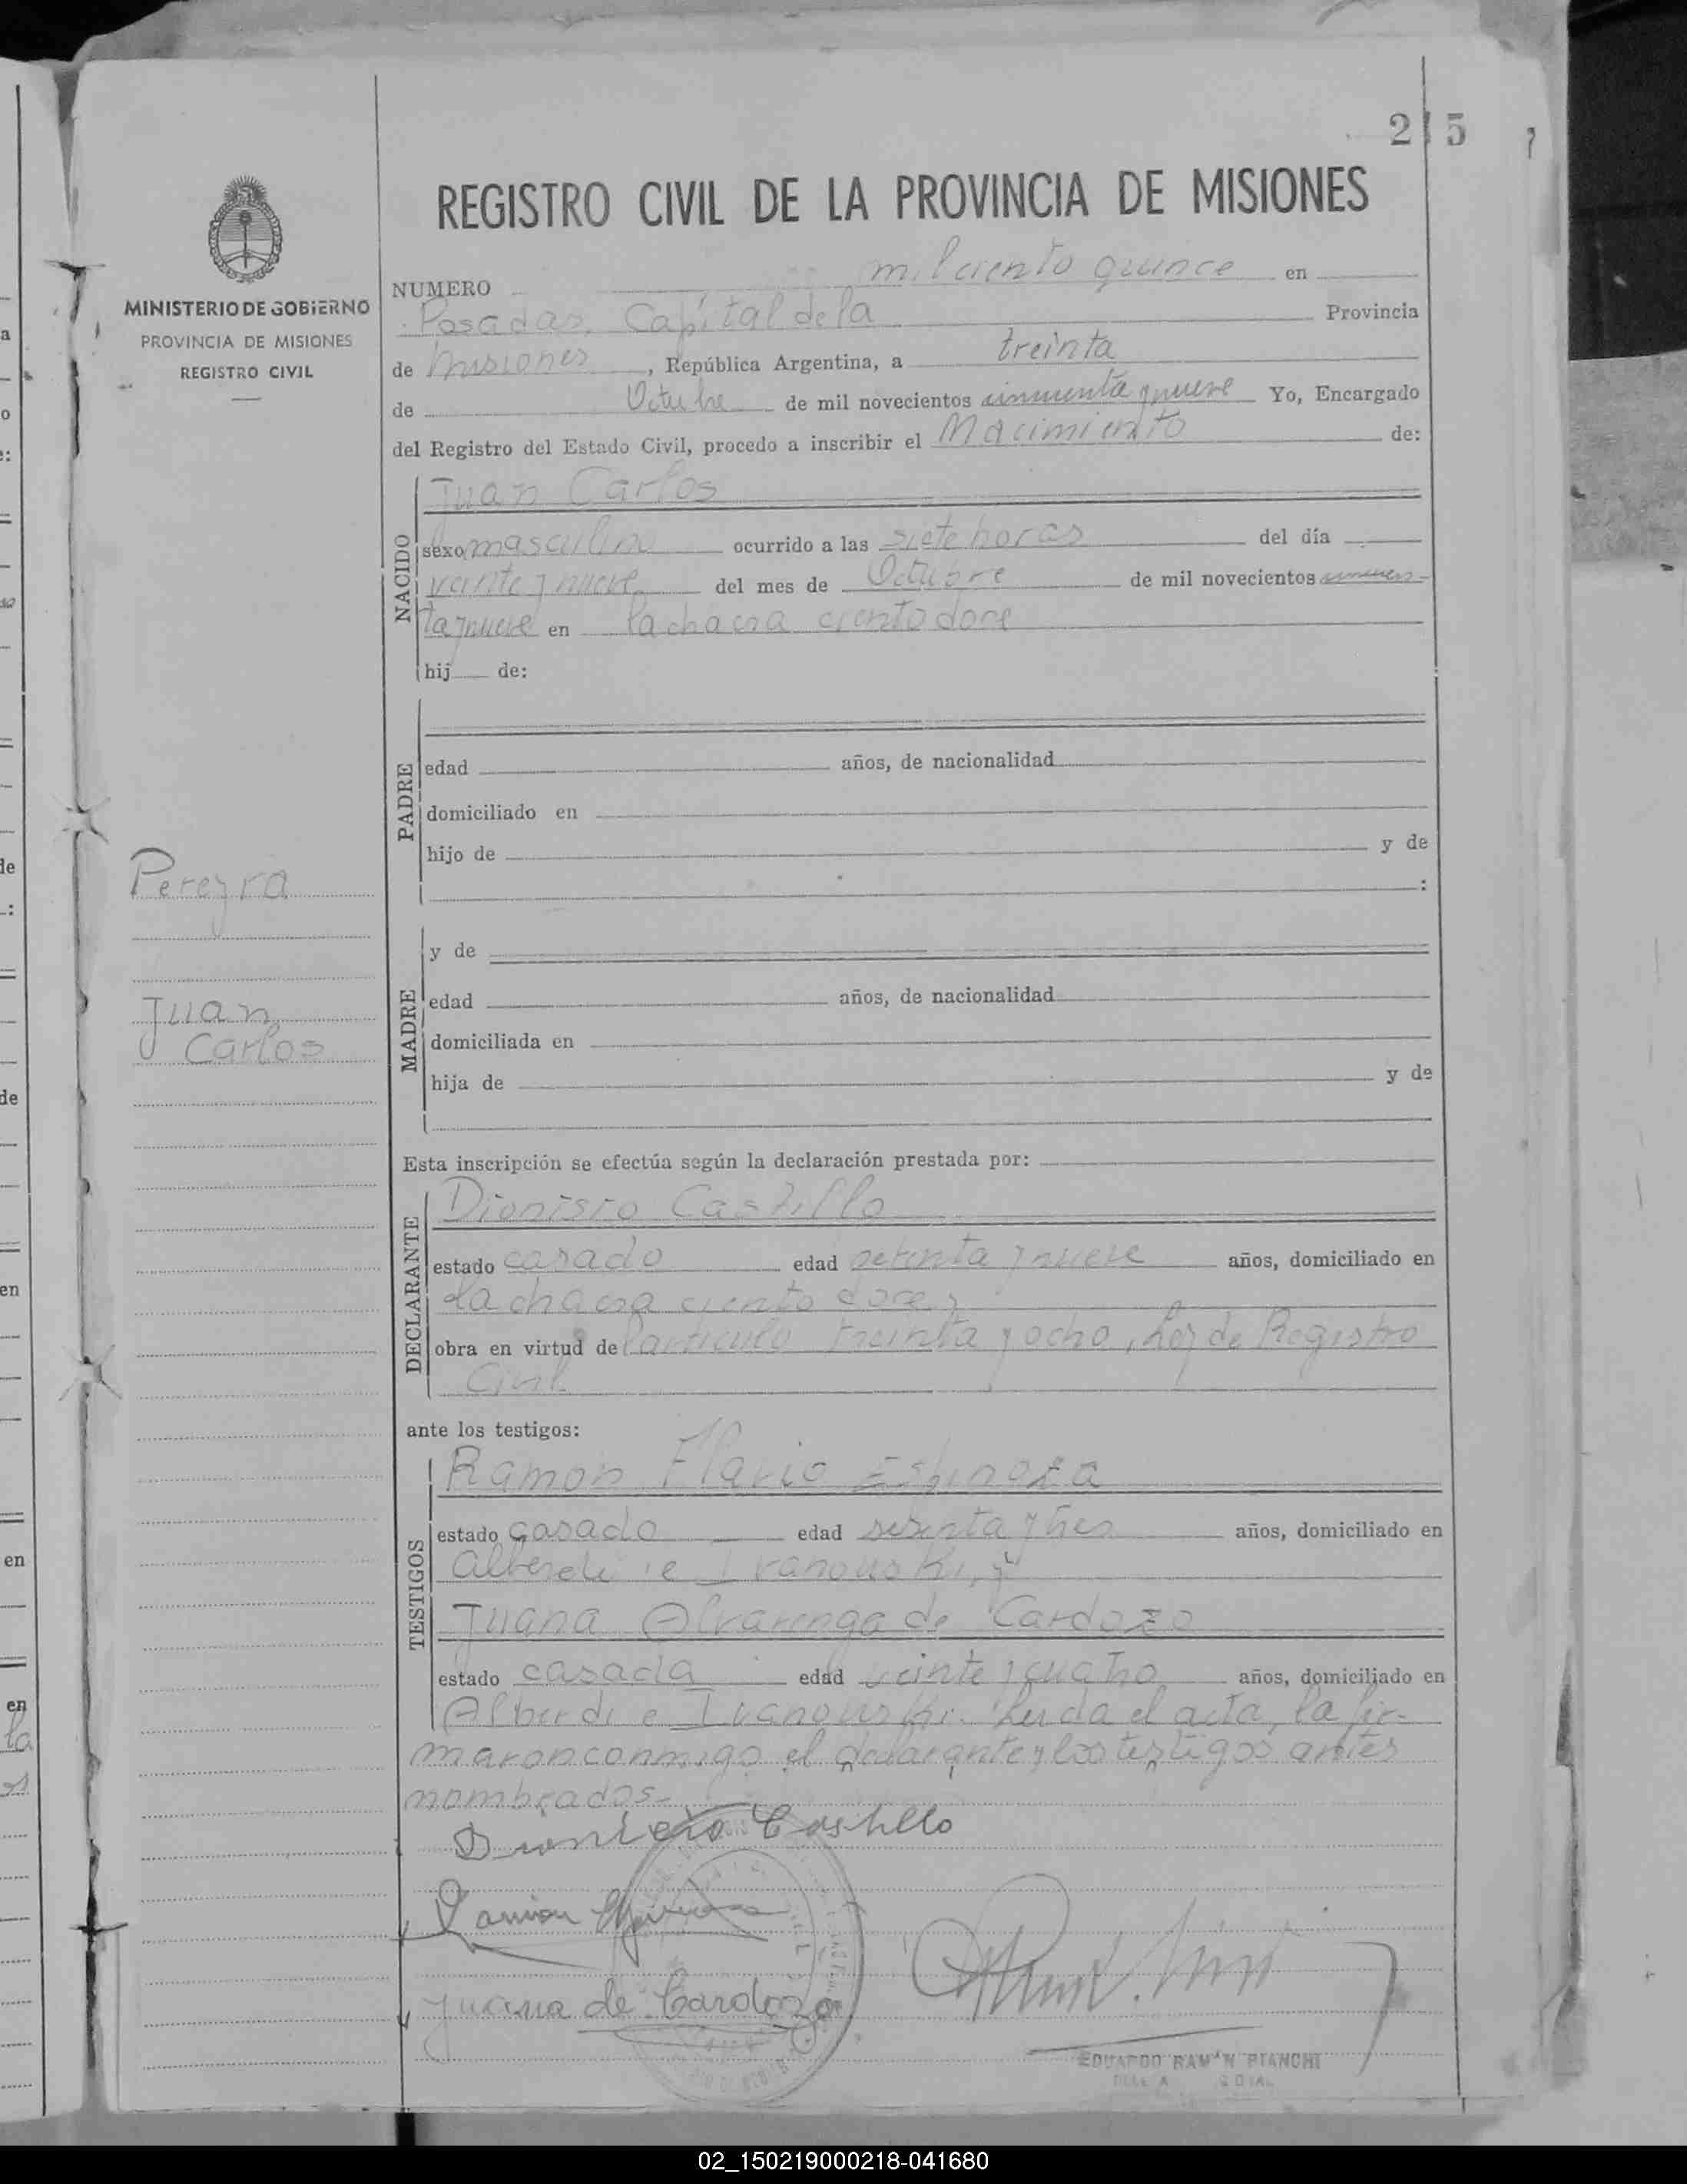 215
REGISTRO CIVIL DE LA PROVINCIA DE MISIONES
MINISTERIO DE GOBIERNO
PROVINCIA DE MISIONES
REGISTRO CIVIL
NUMERO mil ciento quince en
Posadas, Capital de la Provincia
de Misiones, República Argentina, a treinta
de Octubre de mil novecientos cincuenta y nueve Yo, Encargado
del Registro del Estado Civil, procedo a inscribir el Nacimiento de:
NACIDO
Juan Carlos
sexo masculino ocurrido a las siete horas del día
veinte y nueve del mes de Octubre de mil novecientos cincuen-
ta y nueve en la chacra ciento doce
hij de:
PADRE
edad años, de nacionalidad
domiciliado en
hijo de y de
:
Pereyra
Juan
Carlos
MADRE
y de
edad años, de nacionalidad
domiciliada en
hija de y de
Esta inscripción se efectúa según la declaración prestada por:
DECLARANTE
Dionisio Castillo
estado casado edad setenta y nueve años, domiciliado en
la chacra ciento doce,
obra en virtud de l articulo treinta y ocho, Ley de Registro
Civil
ante los testigos:
TESTIGOS
Ramon Flavio Espinoza
estado casado edad sesenta y tres años, domiciliado en
Alberdi e Ivanouski, y
Juana Alvarenga de Cardozo
estado casada edad veinte y cuatro años, domiciliado en
Alberdi e Ivanouski. Leida el acta, la fir-
maron conmigo el declarante y los testigos antes
nombrados.-
Dionisio Castillo
Ramon Espinoza
Juana de Cardozo
EDUARDO RAMON BIANCHI
02_150219000218-041680